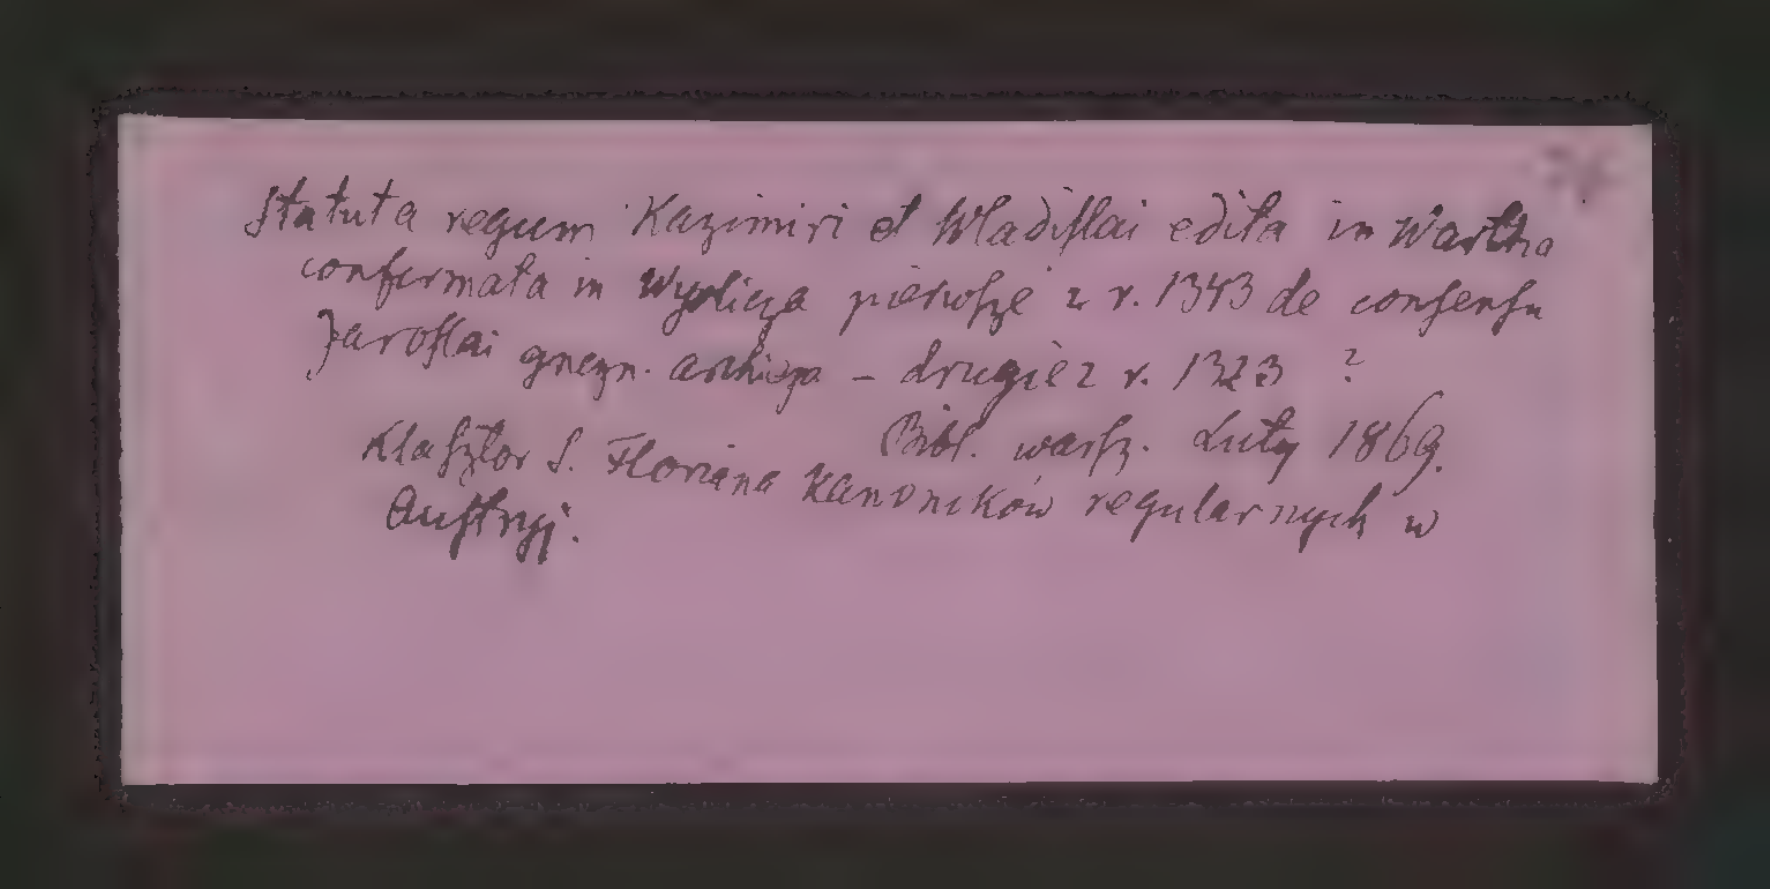 Statuta regum Kazimiri et Wladislai edita in Wartha
confirmata in Wyslicza pierwsze z r. 1343 de consensu
Jaroslai gnezn. archiepa – drugie z r. 1323 ?
Bibl. warsz. Luty 1869.
Klasztor S. Floriana Kanoników regularnych w
Austryj.